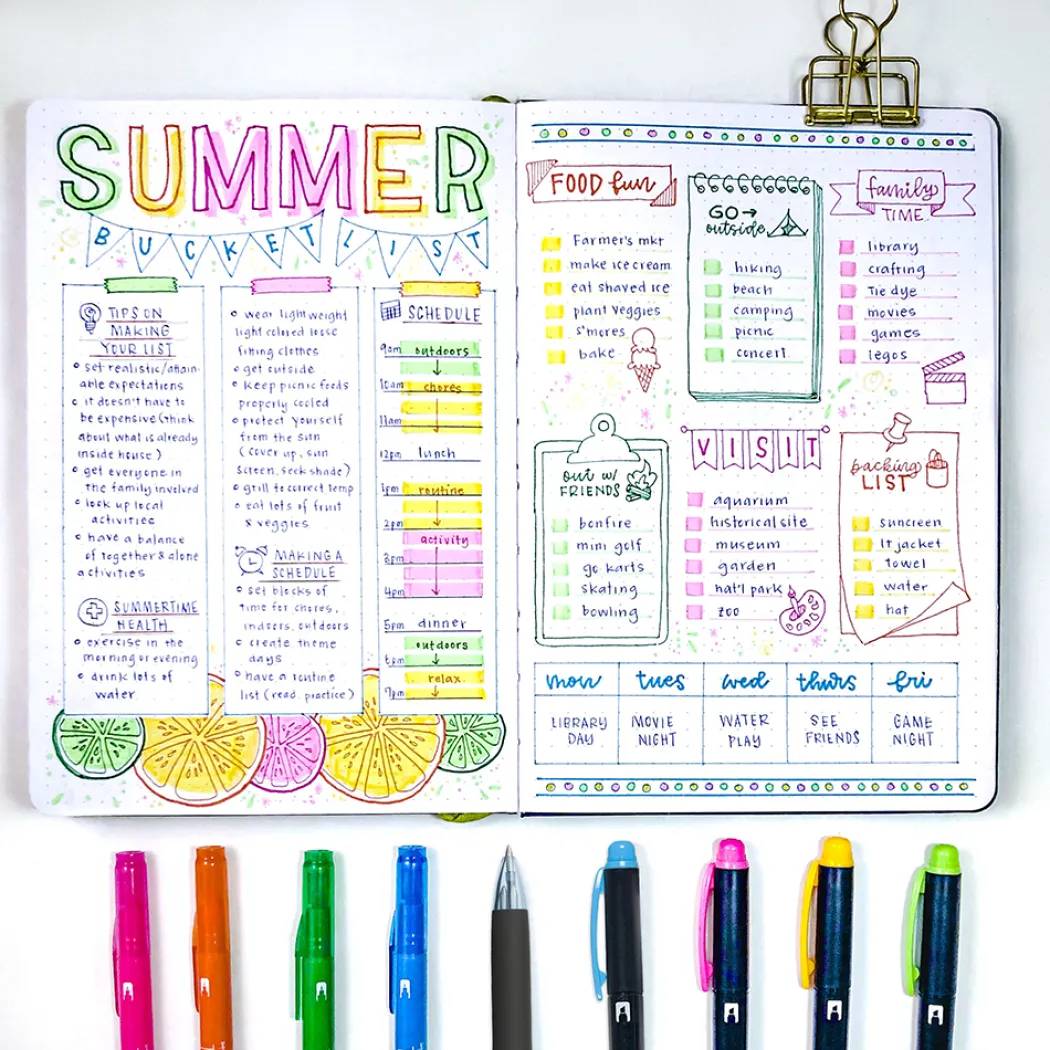 SUMMER
BUCKET LIST
TIPS ON
MAKING
YOUR LIST
set realistic/attain-
able expectations
it doesn't have to
be expensive (think
about what is already
inside house)
get everyone in
the family involved
look up local
activities
have a balance
of together & alone
activities
SUMMERTIME
HEALTH
exercise in the
morning or evening
drink lots of
water
wear lightweight
light colored loose
fitting clothes
get outside
keep picnic foods
properly cooled
protect yourself
from the sun
(cover up, sun
screen, seek shade)
grill to correct temp
eat lots of fruit
& veggies
MAKING A
SCHEDULE
set blocks of
time for chores,
indoors, outdoors
create theme
days
have a routine
list (read, practice)
SCHEDULE
9am outdoors
10am chores
11am
12pm lunch
1pm routine
2pm
activity
3pm
4pm
5pm dinner
outdoors
6pm
relax
9pm
FOOD fun
Farmer's mkt
make ice cream
eat shaved ice
plant veggies
s'mores
bake
GO→
outside
hiking
beach
camping
picnic
concert
family
TIME
library
crafting
Tie dye
movies
games
legos
out w/
FRIENDS
bonfire
mini golf
go karts
skating
bowling
VISIT
aquarium
historical site
museum
garden
nat'l park
zoo
packing
LIST
suncreen
lt jacket
towel
water
hat
mon tues wed thurs fri
LIBRARY DAY
MOVIE NIGHT
WATER PLAY
SEE FRIENDS
GAME NIGHT